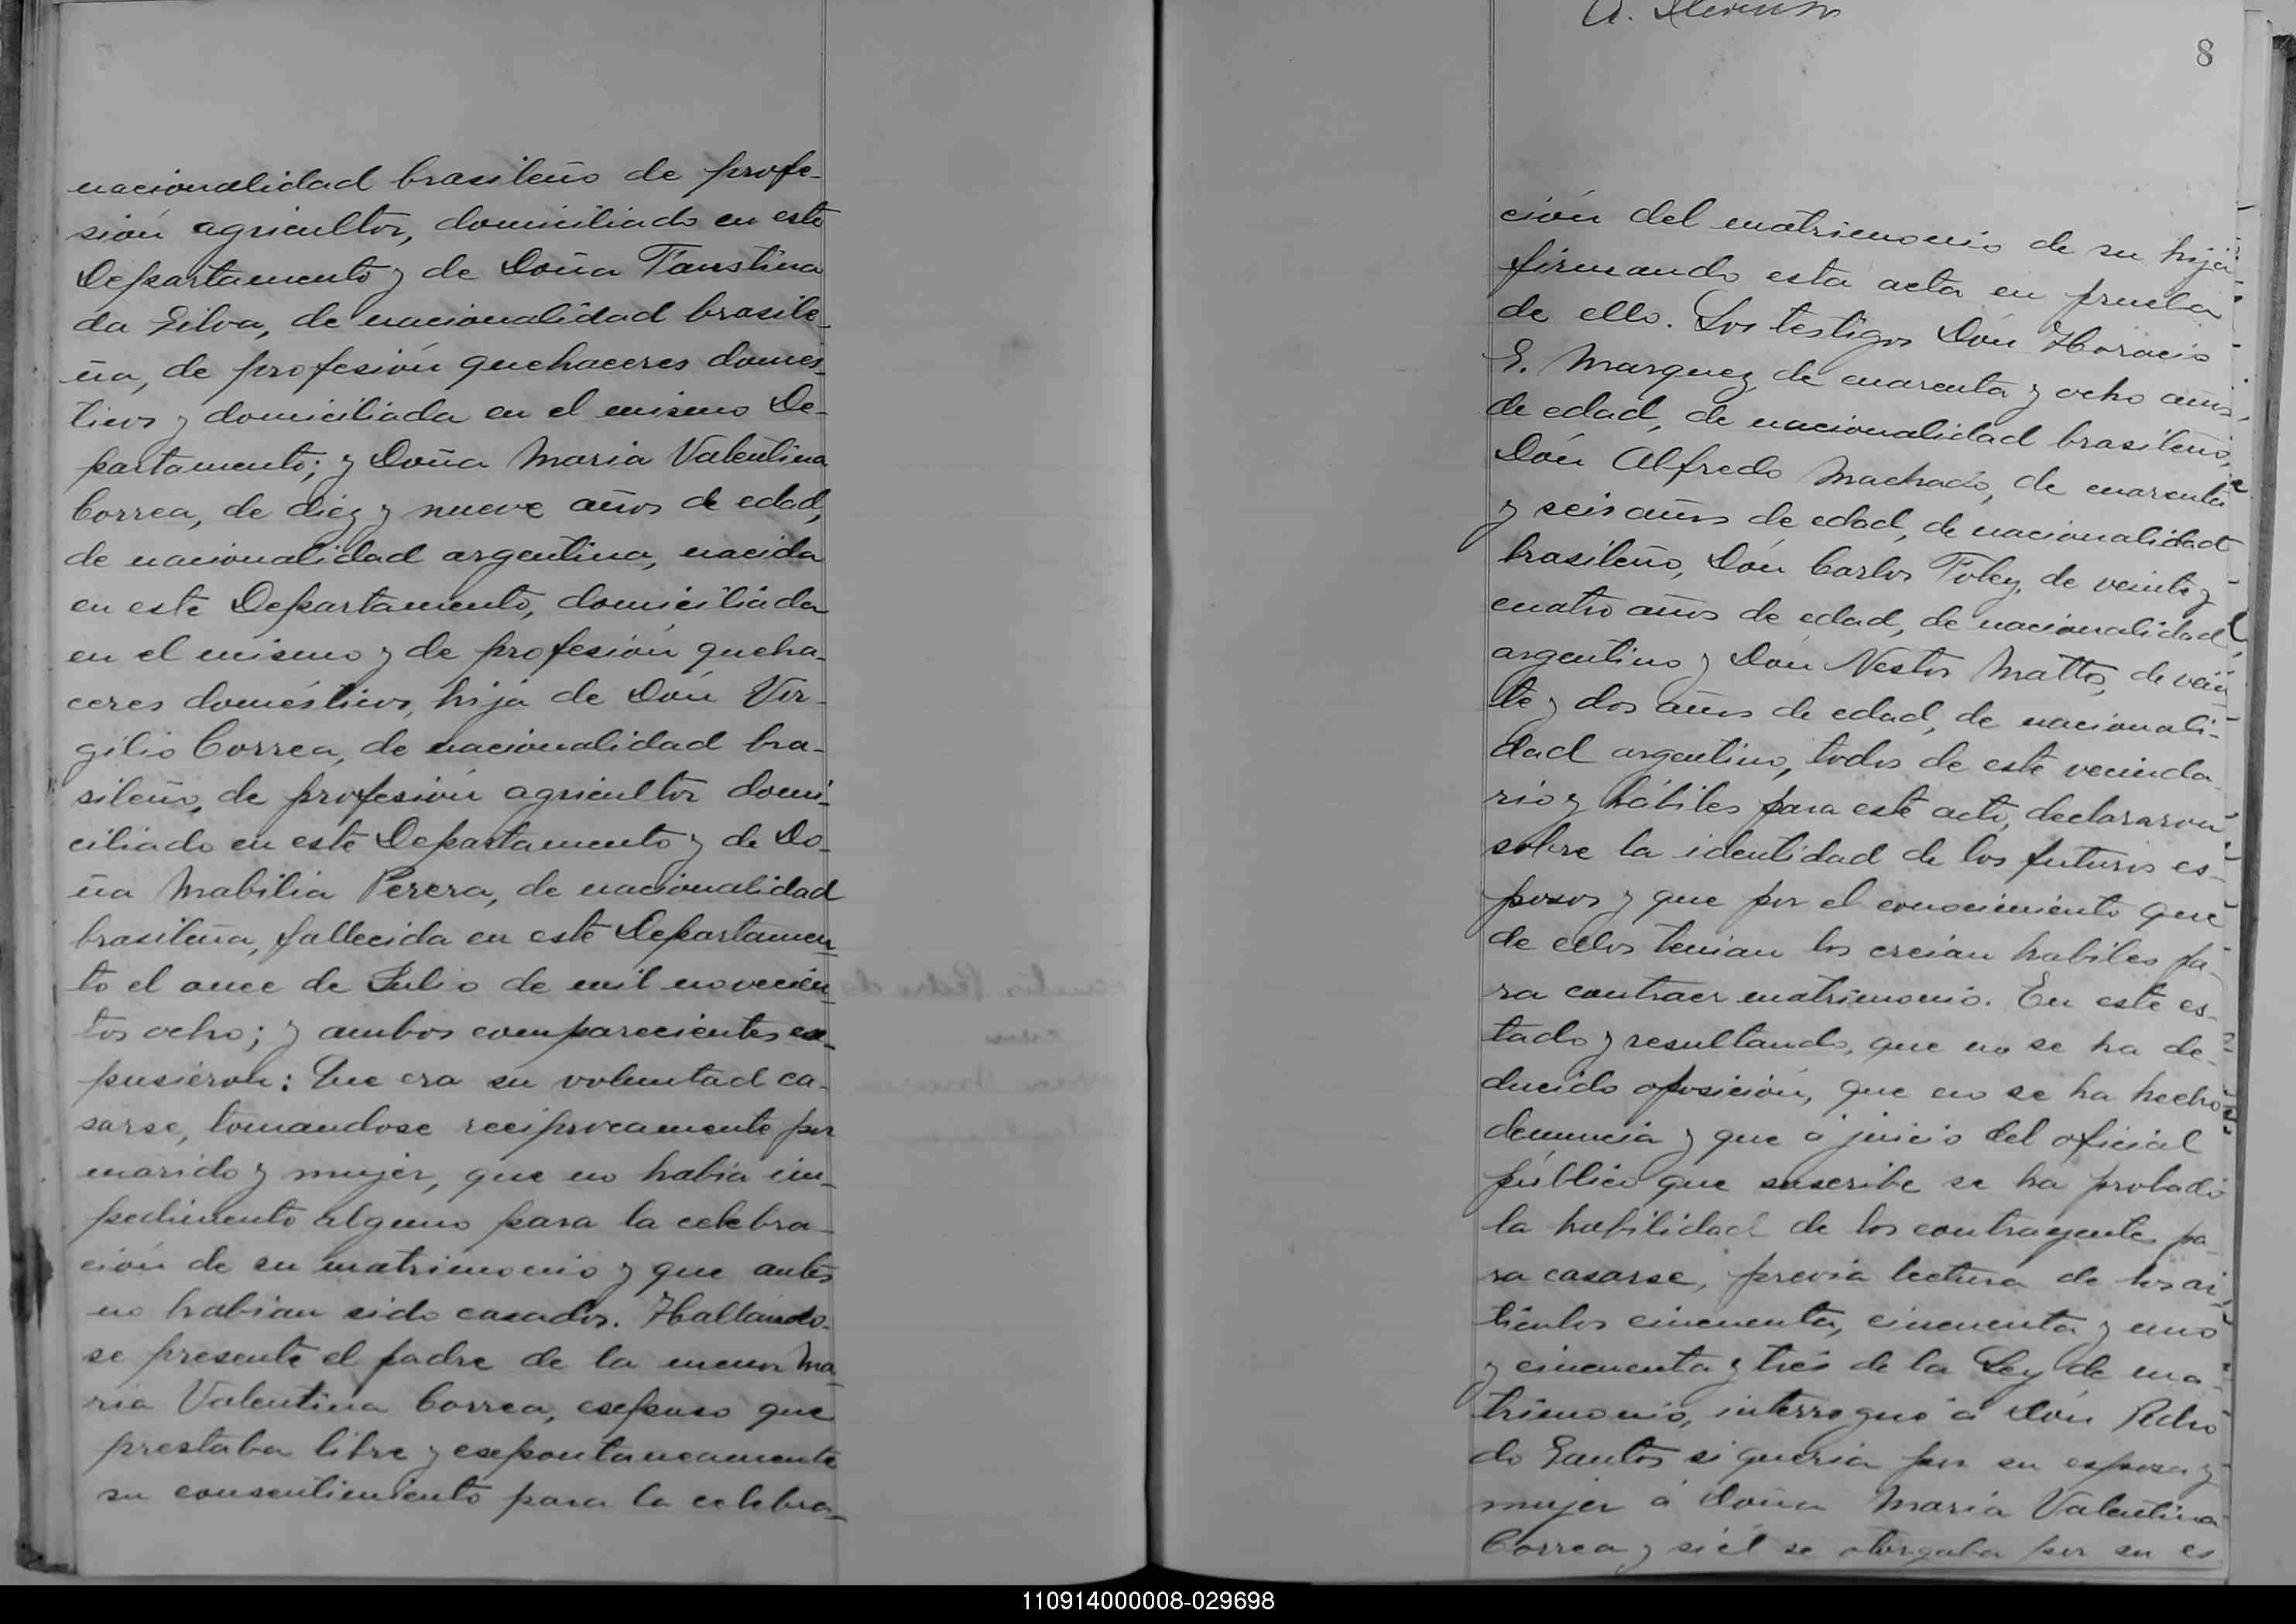 nacionalidad brasileño de profe-
sión agricultor, domiciliado en este
Departamento y de Doña Faustina
da Silva, de nacionalidad brasile-
ña, de profesión quehaceres domes-
ticos y domiciliada en el mismo De-
partamento; y Doña Maria Valentina
Correa, de diez y nueve años de edad,
de nacionalidad argentina, nacida
en este Departamento, domiciliada
en el mismo y de profesión queha-
ceres domésticos, hija de Dón Vir-
gilio Correa, de nacionalidad bra-
sileño, de profesión agricultor domi-
ciliado en este Departamento y de Do-
ña Mabilia Perera, de nacionalidad
brasileña, fallecida en este Departamen-
to el once de Julio de mil novecien-
tos ocho; y ambos comparecientes ex-
pusieron: Que era su voluntad ca-
sarse, tomandose reciprocamente por
marido y mujer, que no habia im-
pedimento alguno para la celebra-
ción de su matrimonio y que antes
no habian sido casados. Hallando-
se presente el padre de la menor Ma-
ria Valentina Correa, expuso que
prestaba libre y expontaneamente
su consentimiento para la celebra-
A.
8
ción del matrimonio de su hija
firmando esta acta en prueba
de ello. Los testigos Dón Horacio
E. Marquez de cuarenta y ocho años
de edad, de nacionalidad brasileño,
Dón Alfredo Machado, de cuarenta
y seis años de edad, de nacionalidad
brasileño, Dón Carlos Foley, de veinte y
cuatro años de edad, de nacionalidad
argentino y Dón Nestor Mattos, de vein-
te y dos años de edad, de nacionali-
dad argentino, todos de este vecinda-
rio y hábiles para este acto, declararon
sobre la identidad de los futuros es-
posos y que por el conocimiento que
de ellos tenian los creian habiles pa-
ra contraer matrimonio. En este es-
tado y resultando, que no se ha de-
ducido oposición, que no se ha hecho
denuncia y que á juicio del oficial
público que suscribe se ha probado
la habilidad de los contrayentes pa-
ra casarse, previa lectura de los ar-
tículos cincuenta, cincuenta y uno
y cincuenta y tres de la Ley de ma-
trimonio, interrogué á Dón Pedro
do Santos si queria por su esposa y
mujer á Doña Maria Valentina
Correa y si él se otorgaba por su es
110914000008-029698